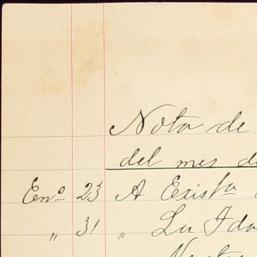 Nota de
del mes d
Enº 23 A Existª
" 31 " Su Ida